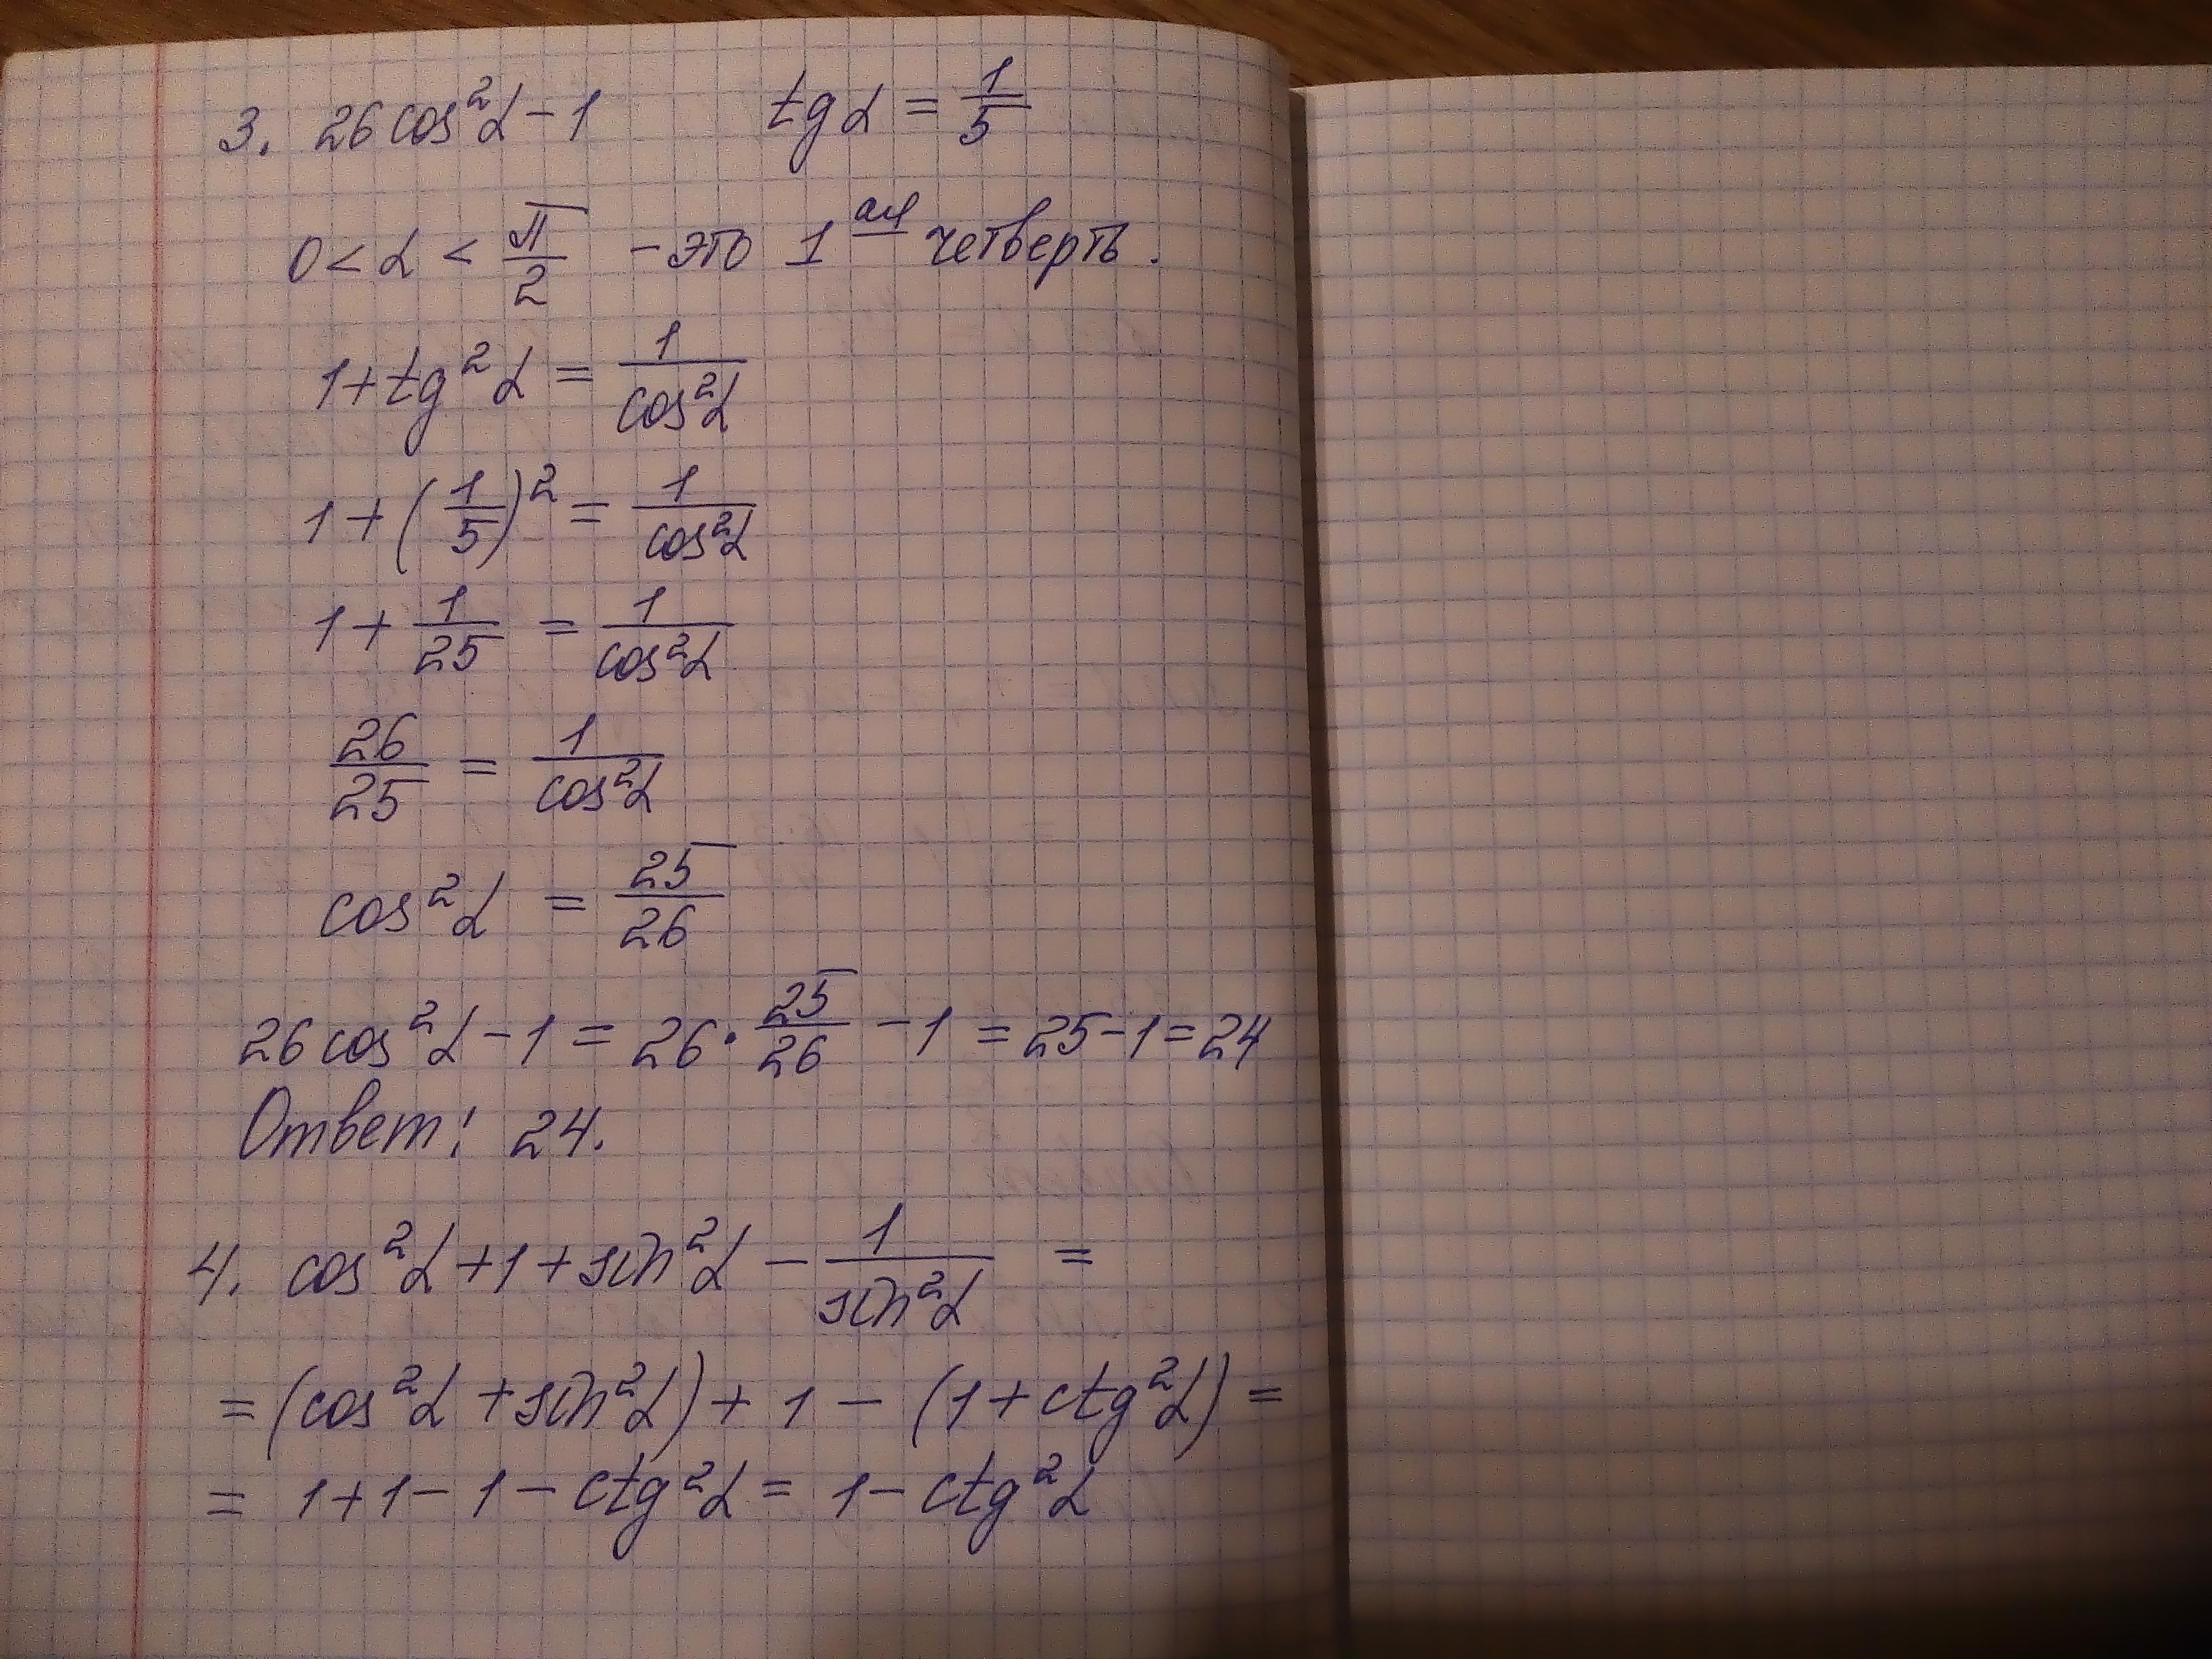 3. 26 cos²α - 1 tg α = 1/5
0 < α < π/2 - это 1ая четверть.
1 + tg²α = 1/cos²α
1 + (1/5)² = 1/cos²α
1 + 1/25 = 1/cos²α
26/25 = 1/cos²α
cos²α = 25/26
26 cos²α - 1 = 26 · 25/26 - 1 = 25 - 1 = 24
Ответ: 24.
4. cos²α + 1 + sin²α - 1/sin²α =
= (cos²α + sin²α) + 1 - (1 + ctg²α) =
= 1 + 1 - 1 - ctg²α = 1 - ctg²α